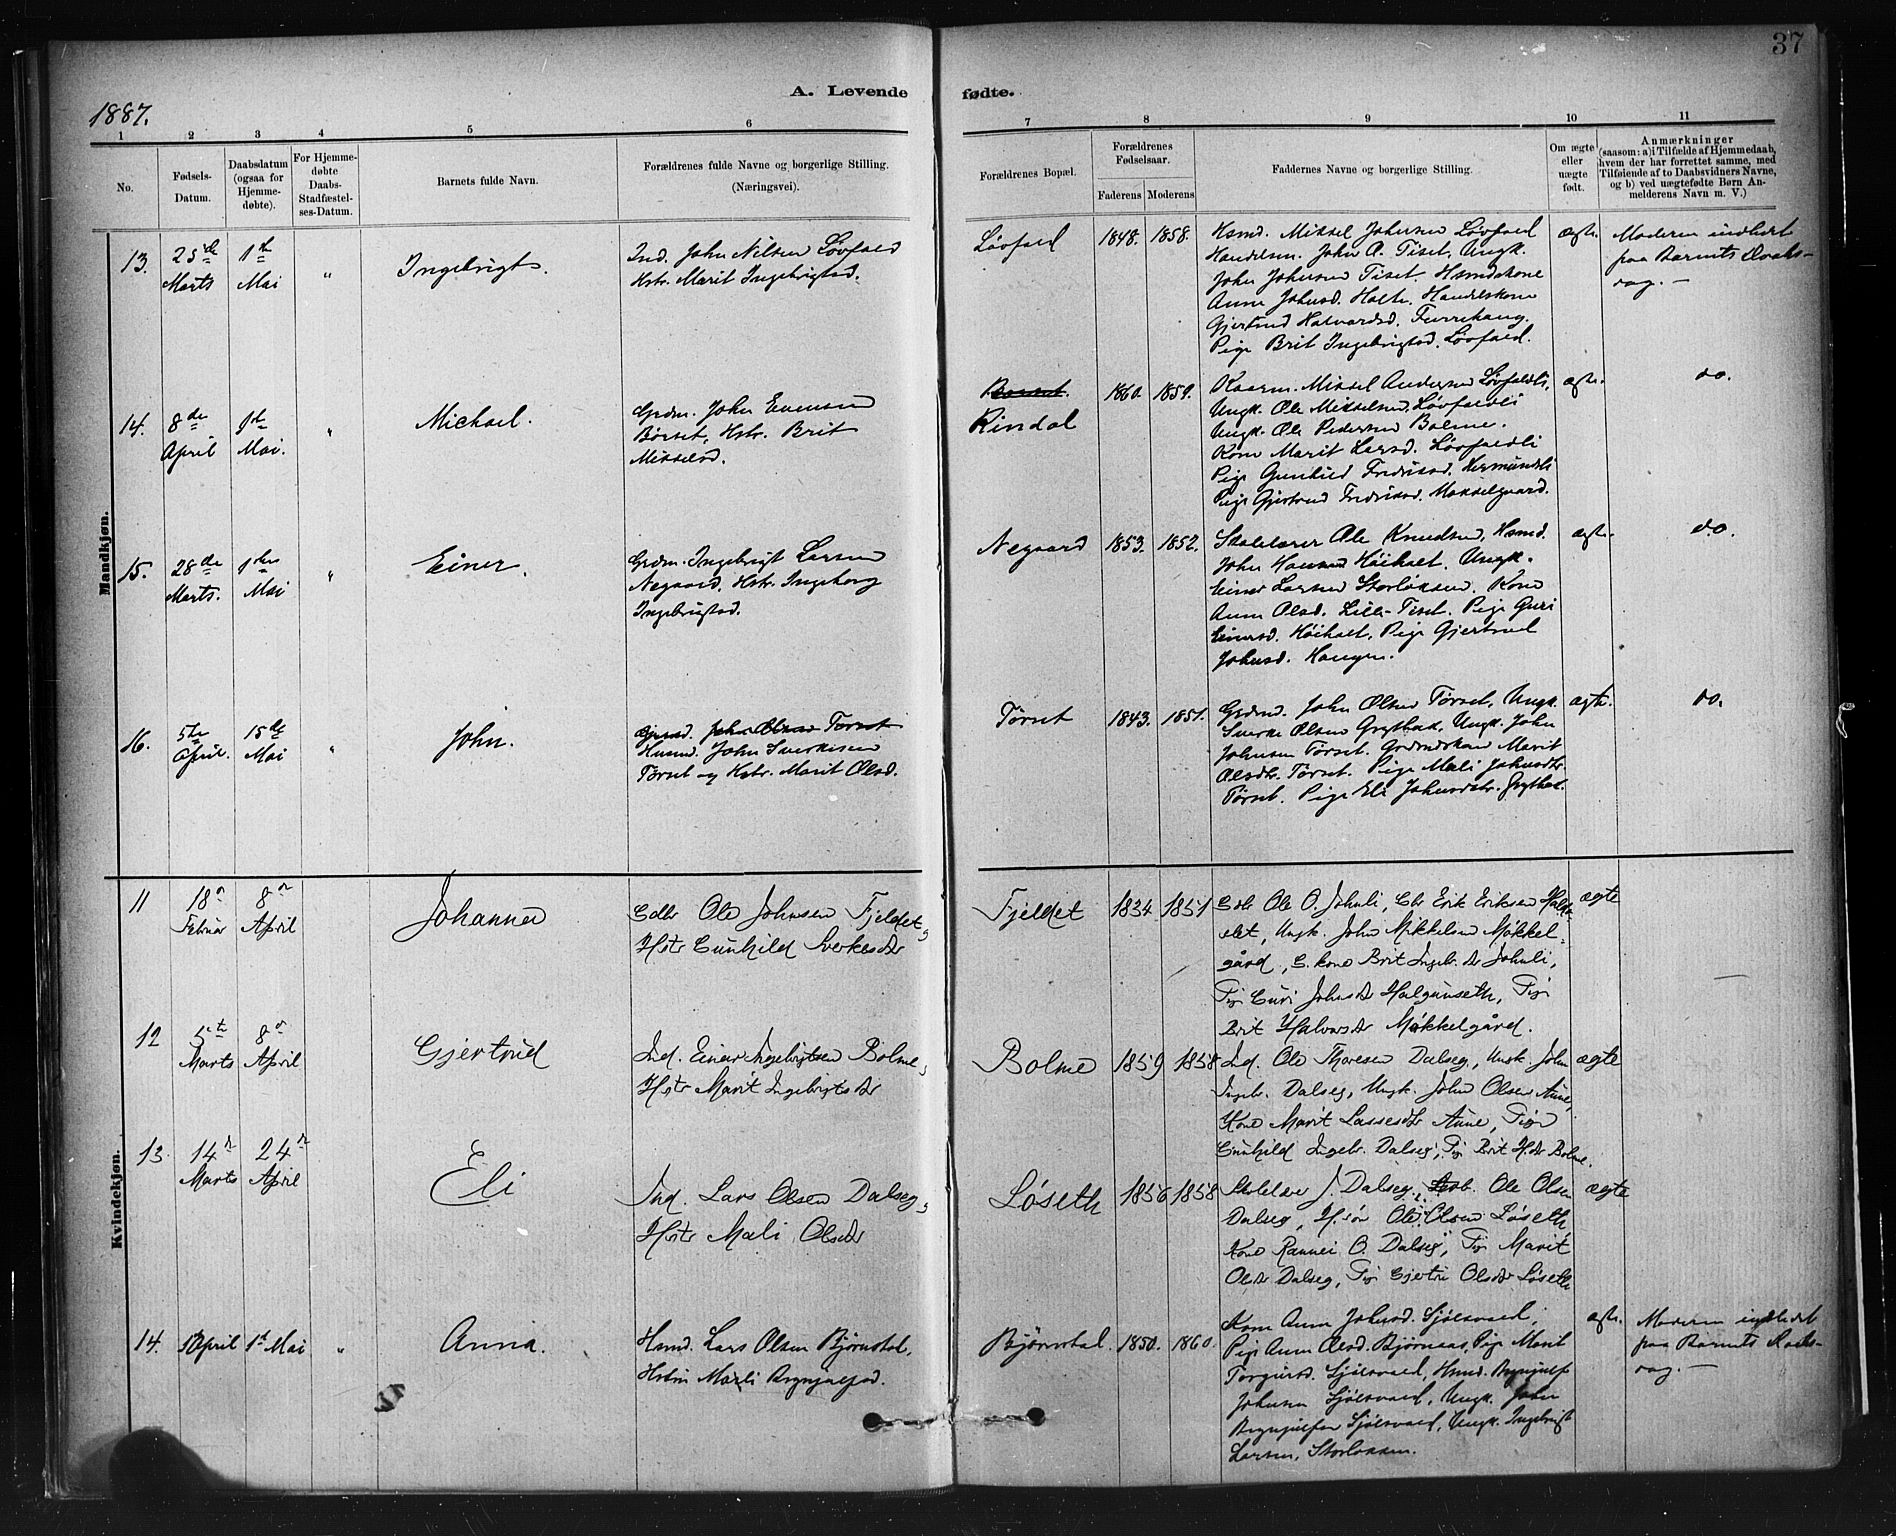 37
1887.
A. Levende fødte.
1 2 3 4 5 6 7 8 9 10 11
No.
Fødsels-Datum.
Daabsdatum (ogsaa for Hjemme-døbte).
For Hjemme-døbte Daabs-Stadfæstel-ses-Datum.
Barnets fulde Navn.
Forældrenes fulde Navne og borgerlige Stilling. (Næringsvei).
Forældrenes Bopæl.
Forældrenes Fødselsaar.
Faderens Moderens
Faddernes Navne og borgerlige Stilling.
Om ægte eller uægte født.
Anmærkninger
(saasom: a) i Tilfælde af Hjemmedaab,
hvem der har forrettet samme, med
Tilføiende af to Daabsvidners Navne,
og b) ved uægtefødte Børn An-
melderens Navn m. V.)
Mandkjøn.
13. 25de Marts 1ste Mai " Ingebrigt.
Ind. John Nilsen Løvfald
Hstr. Marit Ingebrigtsd.
Løvfald 1848. 1858.
Hsmd. Mikkel Johnsen Løvfald
Handelsm. John A. Tiset. Ungk.
John Johnsen Tiset. Hsmdskone
Anne Johnsd. Holte. Handelskone
Gjertrud Halvardsd. Furrehaug.
Pige Brit Ingebrigtsd. Løvfald.
ægte.
Moderen indledet
paa Barnets Daabs-
dag. —
14. 8de April 1ste Mai. " Michael.
Grdm. John Evensen
Børset, Hstr. Brit
Mikkelsd.
Børset.
Rindal 1860. 1859.
Kaarm. Mikkel Andersen Løvfaldli,
Ungk. Ole Mikkelsen Løvfaldli
Ungk. Ole Pedersen Bolme.
Kone Marit Larsd. Løvfaldli
Pige Gunhild Fredriksd. Hermundsli
Pige Gjertrud Fredriksd. Mokkelgaard.
ægte. do.
15. 28de Marts. 1ste Mai " Einer.
Grdm. Ingebrigt Larsen
Negaard, Hstr. Ingeborg
Ingebrigtsd.
Negaard 1853. 1852.
Skolelærer Ole Knudsen, Hsmd.
John Hansen Høiholt. Ungk.
Einer Larsen Storløkken. Kone
Anne Olsd. Lille-Tiset. Pige Guri
Einersd. Høiholt, Pige Gjertrud
Johnsd. Haugen.
ægte. do.
16. 5te April. 15de Mai " John.
Grmd. John Olsen Tørset
Husmd. John Sverkesen
Tørset og Hstr. Marit Olsd.
Tørset 1843. 1851.
Grdmd. John Olsen Tørset, Ungk.
Sverke Olsen Grytbak, Ungk. John
Johnsen Tørset. Grdmdskone Marit
Olsdtr. Tørset. Pige Mali Johnsdtr.
Tørset. Pige Eli Johnsdtr. Grytbak.
ægte. do.
Kvindekjøn.
11 18de Februar 8de April Johanna
Gdbr Ole Johnsen Fjeldet,
Hstr Gunhild Sverkesdtr
Fjeldet 1834 1851
Gdbr Ole O. Johnli, Gbr Erik Eriksen
Ungk. John Mikkelsen Møkkel-
gård, G.kone Brit Ingebr.dtr Johnli,
Pig Guri Johnsdtr Halgunseth, Pige
Brit Halvorsdtr Møkkelgård.
ægte —
12 5te Marts 8de April Gjertrud
Ind. Einar Ingebrigtsen Bolme,
Hstr Marit Ingebrigtsdtr
Bolme 1859 1858
Ind. Ole Thoresen Dalseg, Ungk. John
Ingebr. Dalseg, Ungk. John Olsen Aune,
Kone Marit Lassesdtr Aune, Pige
Gunhild Ingebr. Dalseg, Pig Brit H.dtr Bolme.
ægte
13 14de Marts 24de April Eli
Ind. Lars Olsen Dalseg,
Hstr Mali Olsdtr
Løseth 1856 1858
Skolelær J. Dalseg, Ole Olsen
Dalseg, Ole Olsen Løseth,
Kone Rannei O. Dalseg, Pig Marit
Olsdtr Dalseg, Pig Gjertru Olsdtr Løseth
ægte
14. 5 April 1st Mai " Anna.
Hsmd. Lars Olsen Bjørnstal,
Hstru Marli Brynjulfsd.
Bjørnstal. 1850. 1860.
Kone Anne Johnsd. Sjølsvold,
Pige Anne Olsd. Bjørnaas, Pige Marit
Torgersd. Sjølsvold, Hsmd. Brynjulf
Johnsen Sjølsvold, Ungk. John
Brynjulfsen Sjølsvold, Ungk. Ingebrigt
Larsen, Storløkken.
ægte.
Moderen indledet
paa Barnets Daabs-
dag. —